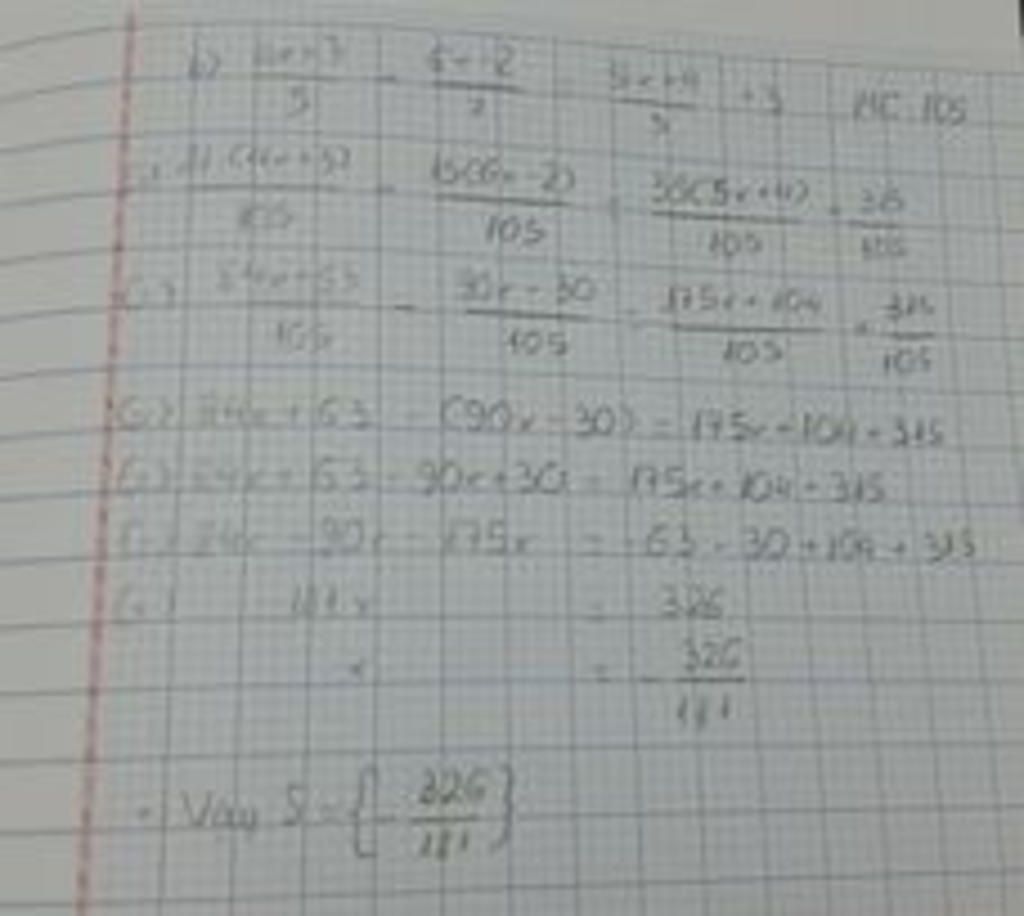 b) 4x+3/5 - 6x-2/7 = 5x+4/3 + 3 MC 105
21(4x+3)/105 - 15(6x-2)/105 = 35(5x+4)/105 + 315/105
84x+63/105 - 90x-30/105 = 175x+104/105 + 315/105
84x+63 - (90x-30) = 175x+104+315
84x+63-90x+30 = 175x+104+315
84x-90x-175x = -63-30+104+315
181x = 326
x = - 326/181
Vậy S = {- 326/181}